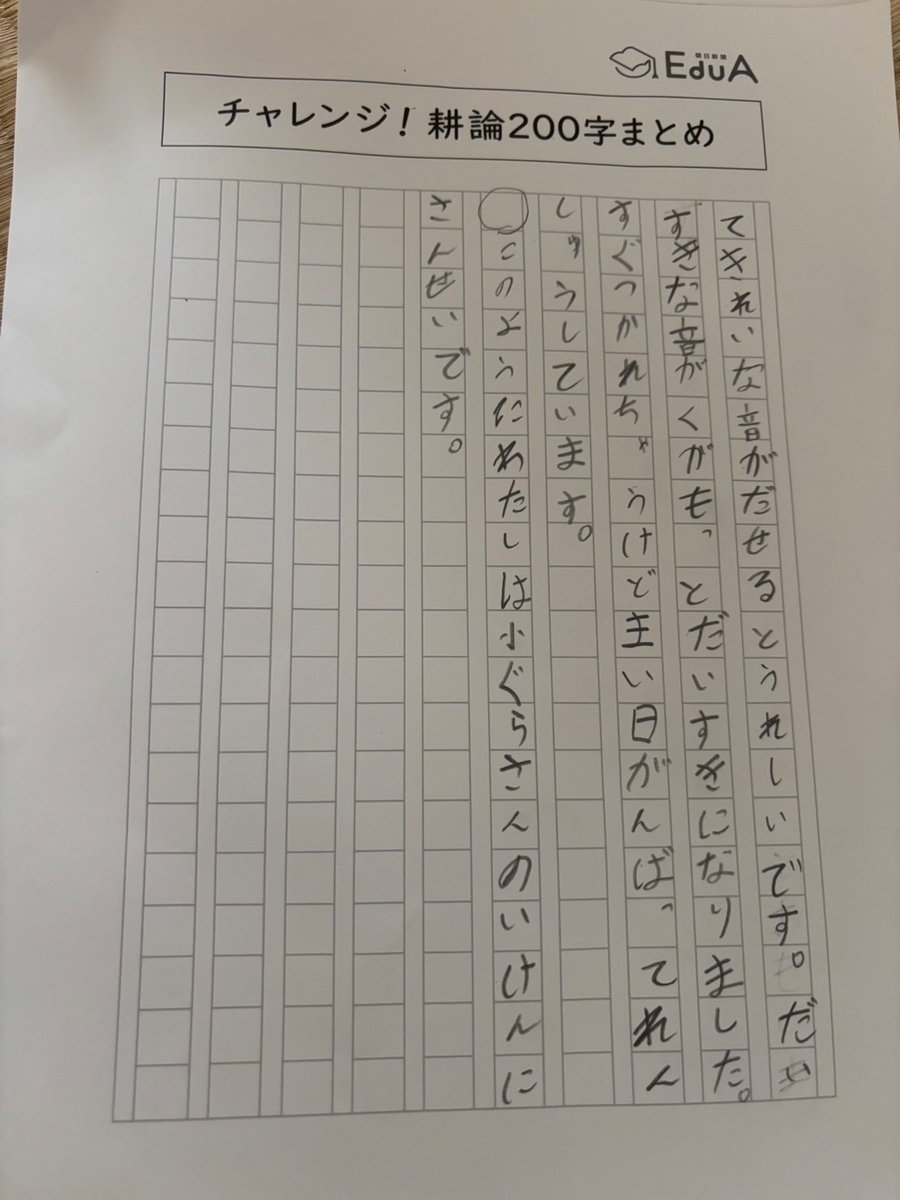 朝日新聞
EduA
チャレンジ！耕論200字まとめ
てきれいな音がだせるとうれしいです。だい
すきな音がくがもっとだいすきになりました。
すぐつかれちゃうけど主い日がんばってれん
しゅうしています。
このようにわたしは小ぐらさんのいけんに
さんせいです。